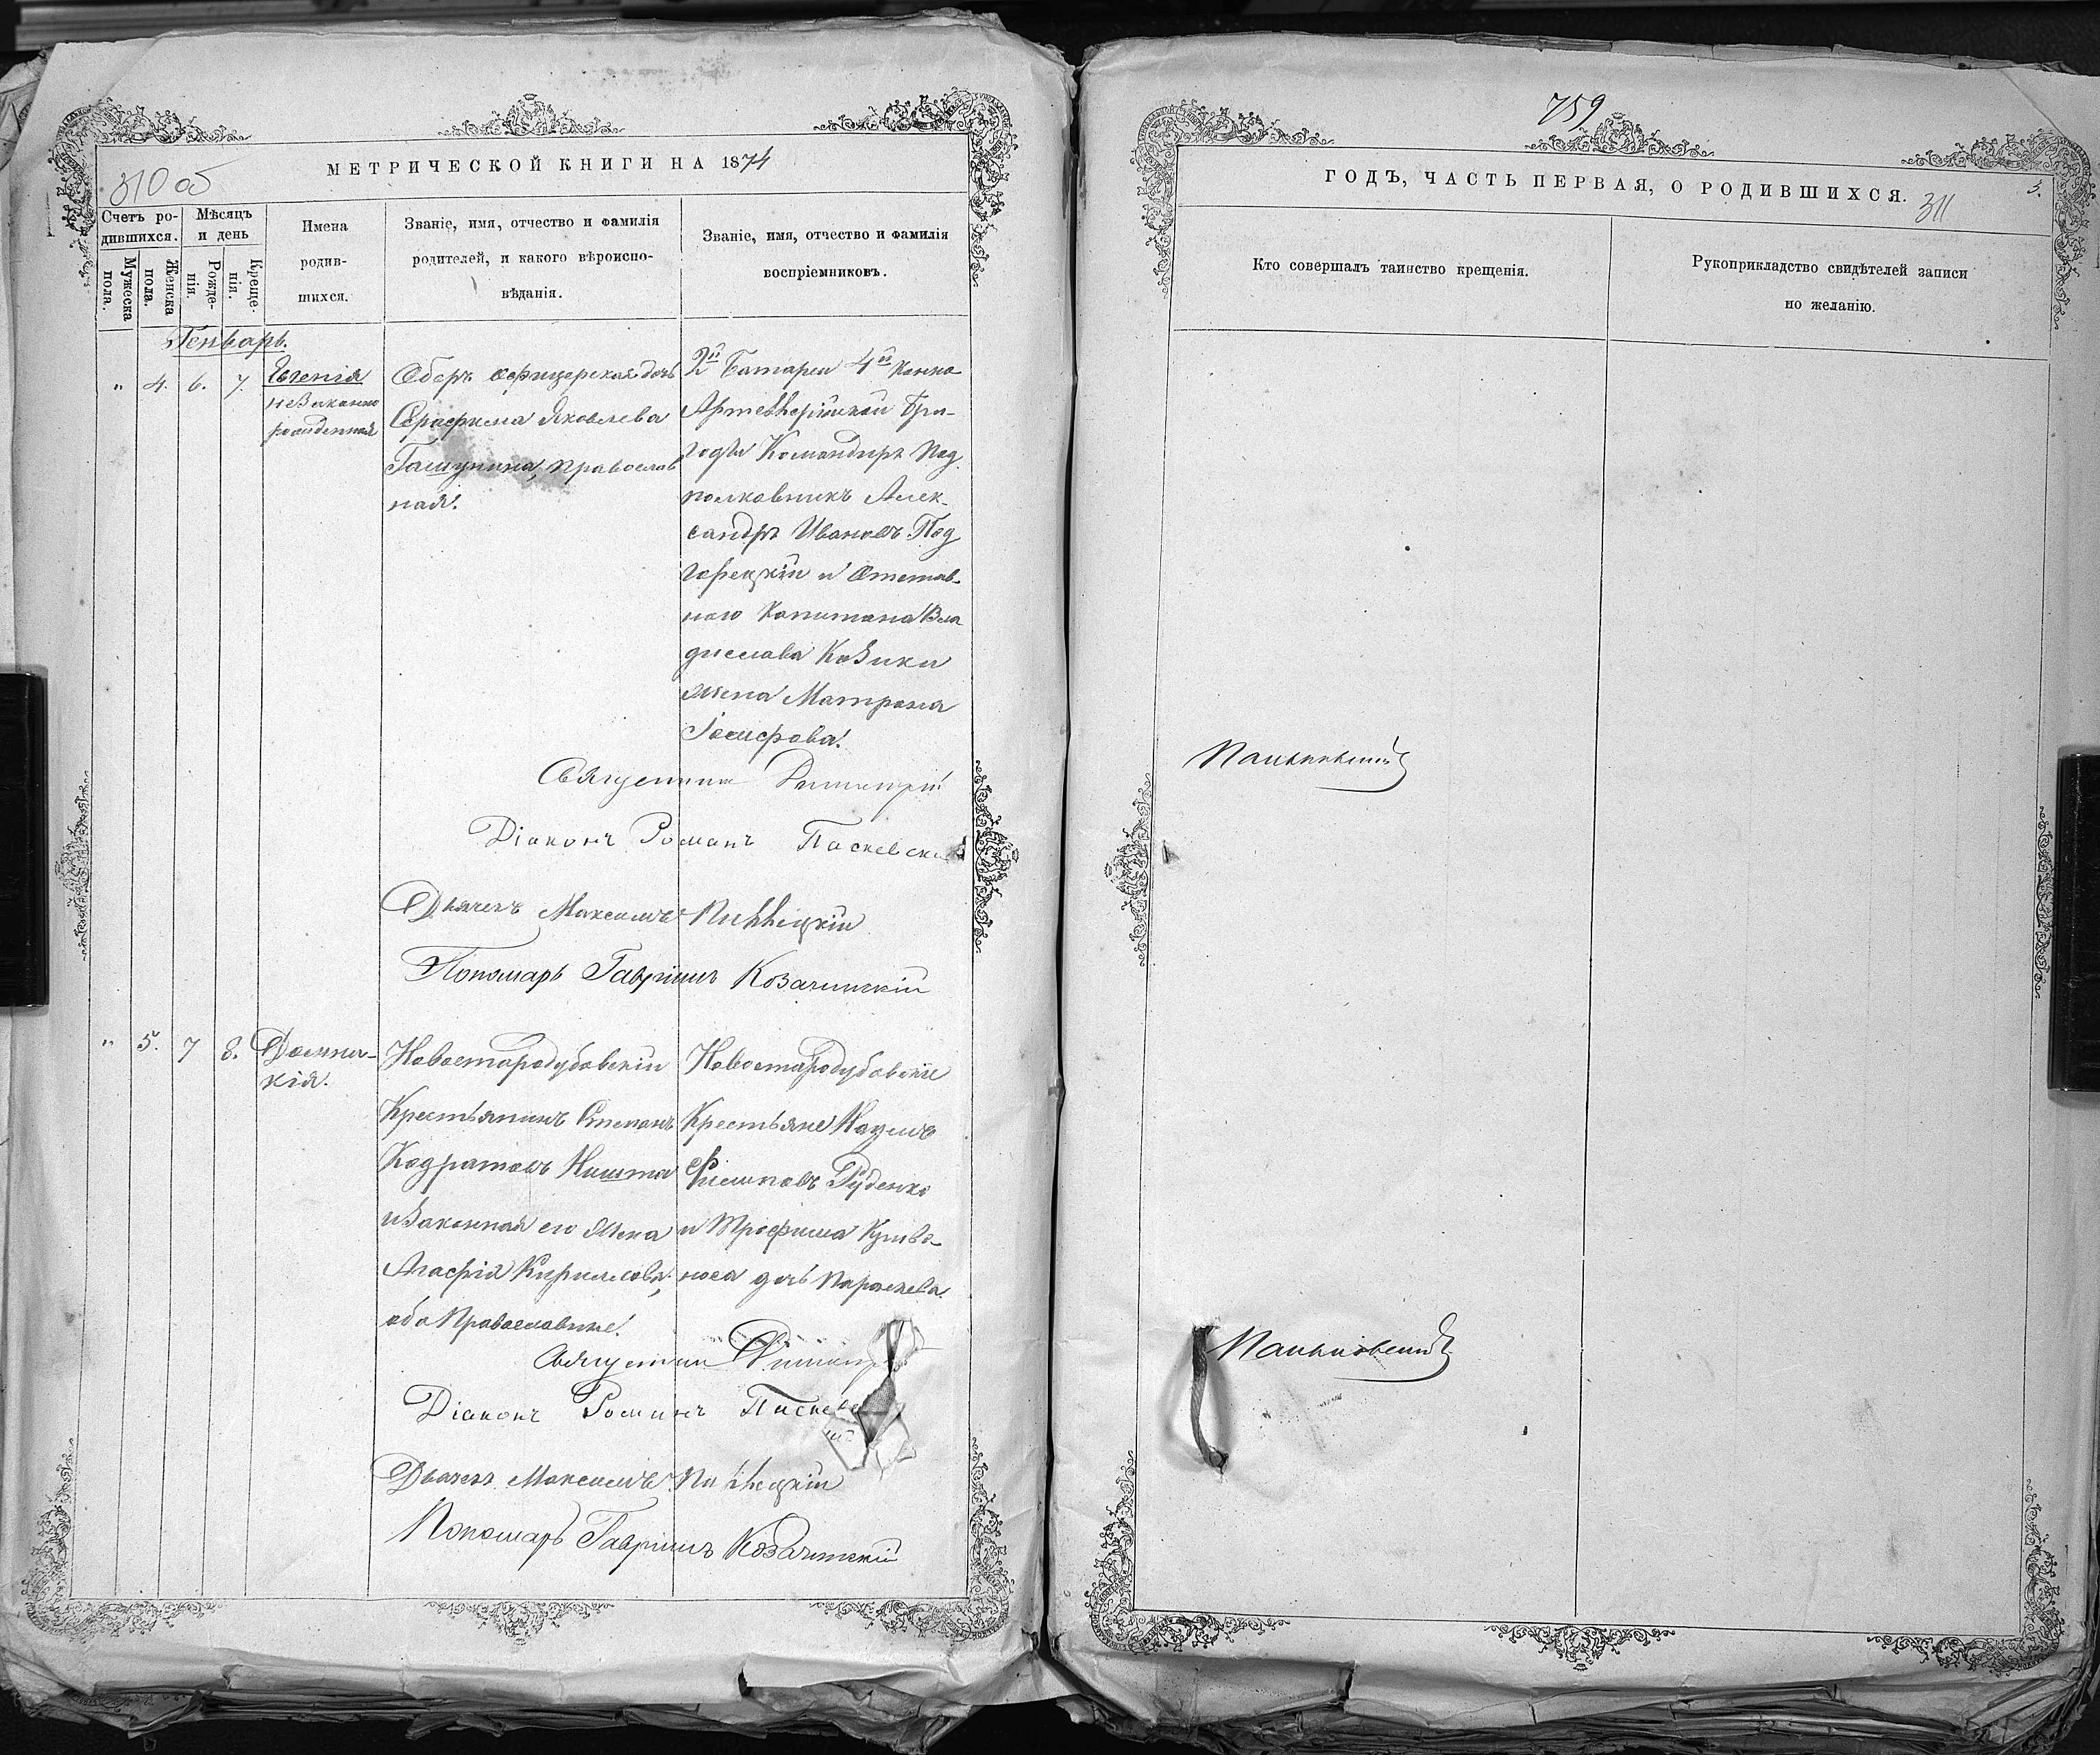 МЕТРИЧЕСКОЙ КНИГИ НА 1874
310 об
Счетъ родившихся.
Мужеска пола.
Женска пола.
Мѣсяцъ и день
Рожденія.
Крещенія.
Имена
родив-
шихся.
Званіе, имя, отчество и фамилія
родителей, и какого вѣроиспо-
вѣданія.
Званіе, имя, отчество и фамилія
воспріемниковъ.
Генварь.
" 4. 6. 7.
Евгенія
незаконно
рожденная
Оберъ офицерская дочь
Серафима Яковлева
православ
ная.
2й Батареи 4й Конно
Артеллерійской Бри-
гады Командиръ Под
полковникъ Алек-
сандръ Ивановъ Под
горецкій и Отстав-
ного Капитана Вла
дислава Козика
жена Матрона
Іосифова.
Священник Димитрій Паньковскій
Діаконъ Романъ Паскевскій
Дьячекъ Максимъ
Пономарь Гавріилъ Козачинскій
" 5. 7 8.
Домни-
кія.
Новостародубовскій
Крестьянинъ Степанъ
Кодратовъ Ништа
и Законная его жена
Агафія Кирилова,
оба Православные.
Новостародубовскіе
Крестьяне Наумъ
Руденко
и Трофима Криво-
носа дочь Параскева.
Священник Димитрій Паньковскій
Діаконъ Романъ
Дьячекъ Максимъ
Пономарь Гавріилъ Козачинскій
759
ГОДЪ, ЧАСТЬ ПЕРВАЯ, О РОДИВШИХСЯ.
311
3.
Кто совершалъ таинство крещенія.
Рукоприкладство свидѣтелей записи
по желанію.